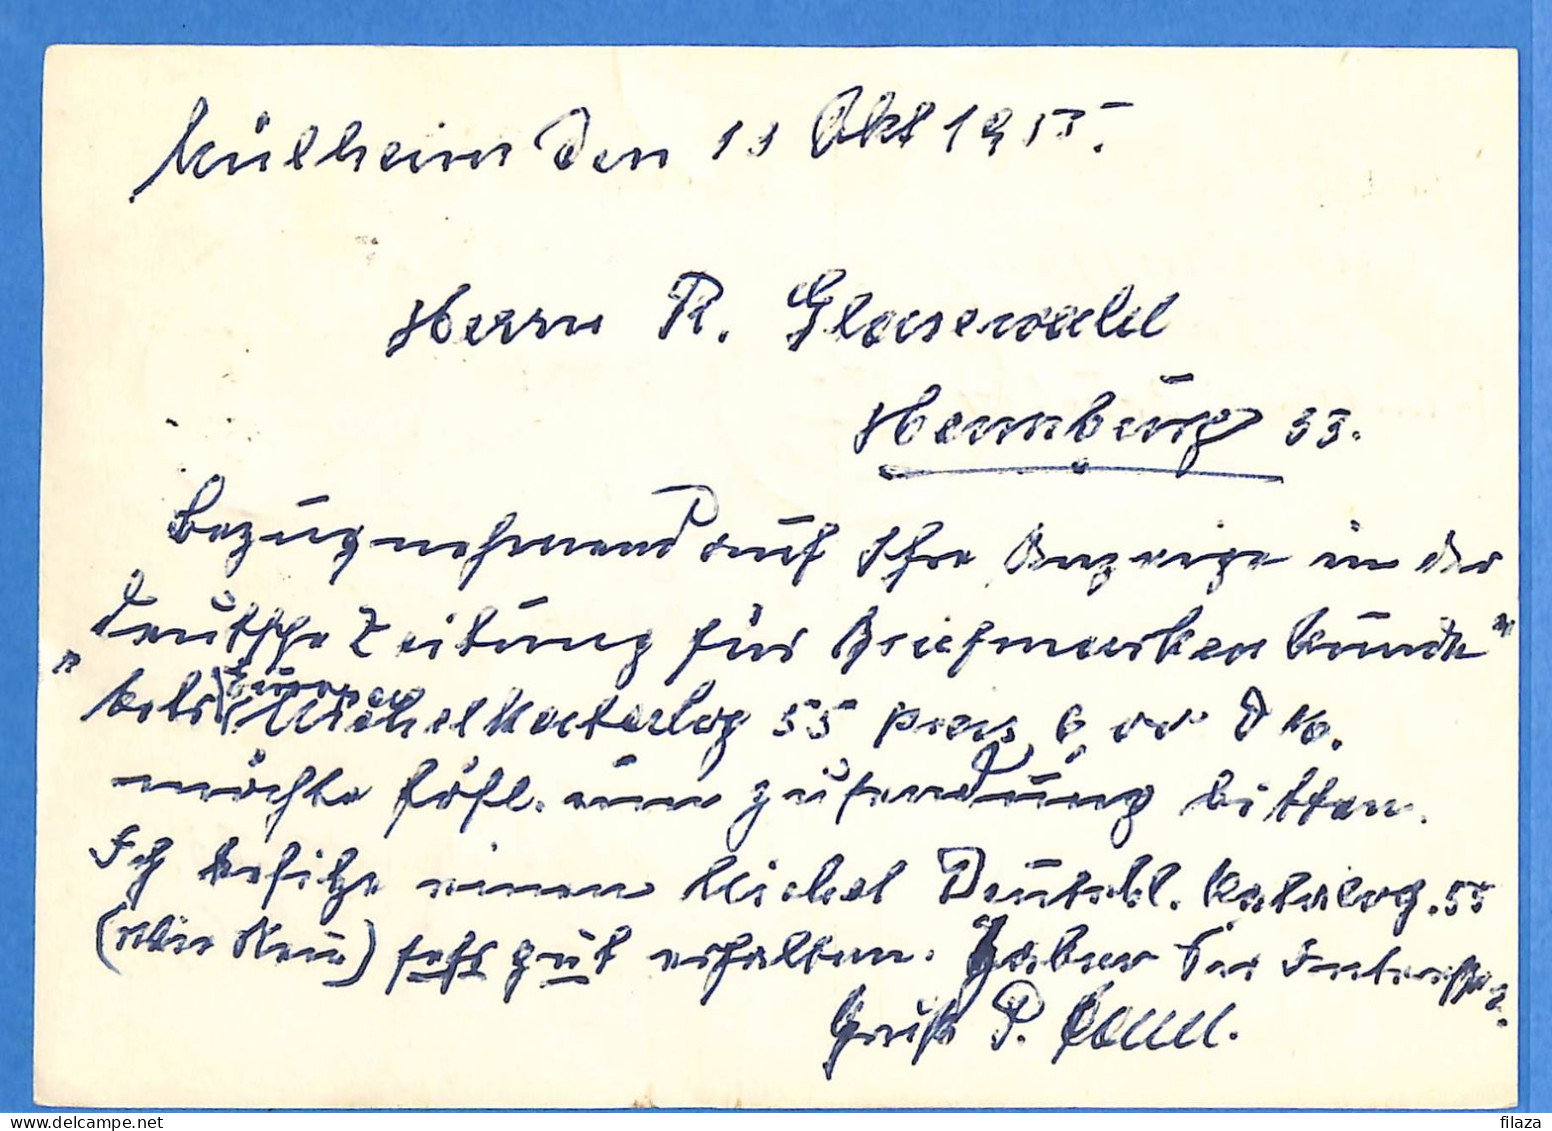 Mülheim den 11 Okt 1955.
Herrn R. Glasewald
Hamburg 33.
Bezugnehmend auf Ihre Anzeige in der
"deutsche Zeitung für Briefmarkenkunde"
betr. Michel Katalog 55 preis 6,00 DM.
möchte höfl. um zusendung bitten.
Ich besitze einen Michel Deutschl. Katalog. 55
(Wie Neu) sehr gut erhalten. Haben Sie Interesse?
Grüßt P.
delcampe.net
filaza